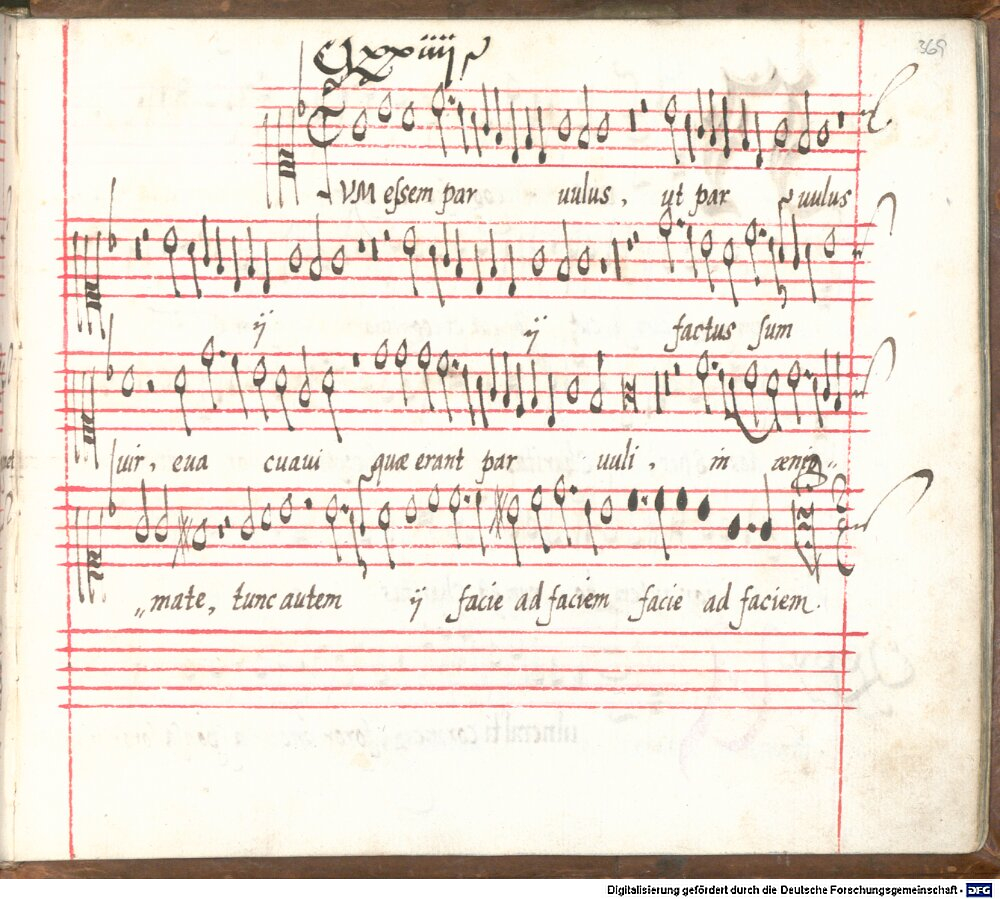 Cxxiiij
369
CVM essem par uulus, ut par uulus
ij ij factus sum
uir, eua cuaui quæ erant par uuli, in ænig„
„mate, tunc autem ij facie ad faciem facie ad faciem.
Digitalisierung gefördert durch die Deutsche Forschungsgemeinschaft - DFG